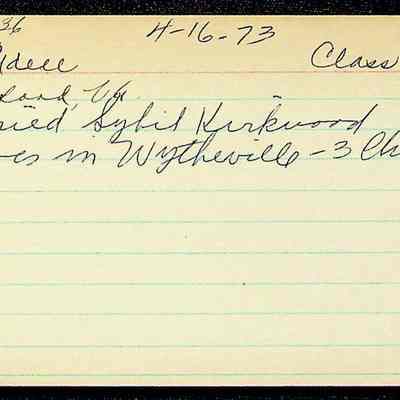 36 4-16-73
Class
Va.
ried Sybil Kirkwood
es in Wytheville - 3 Ch